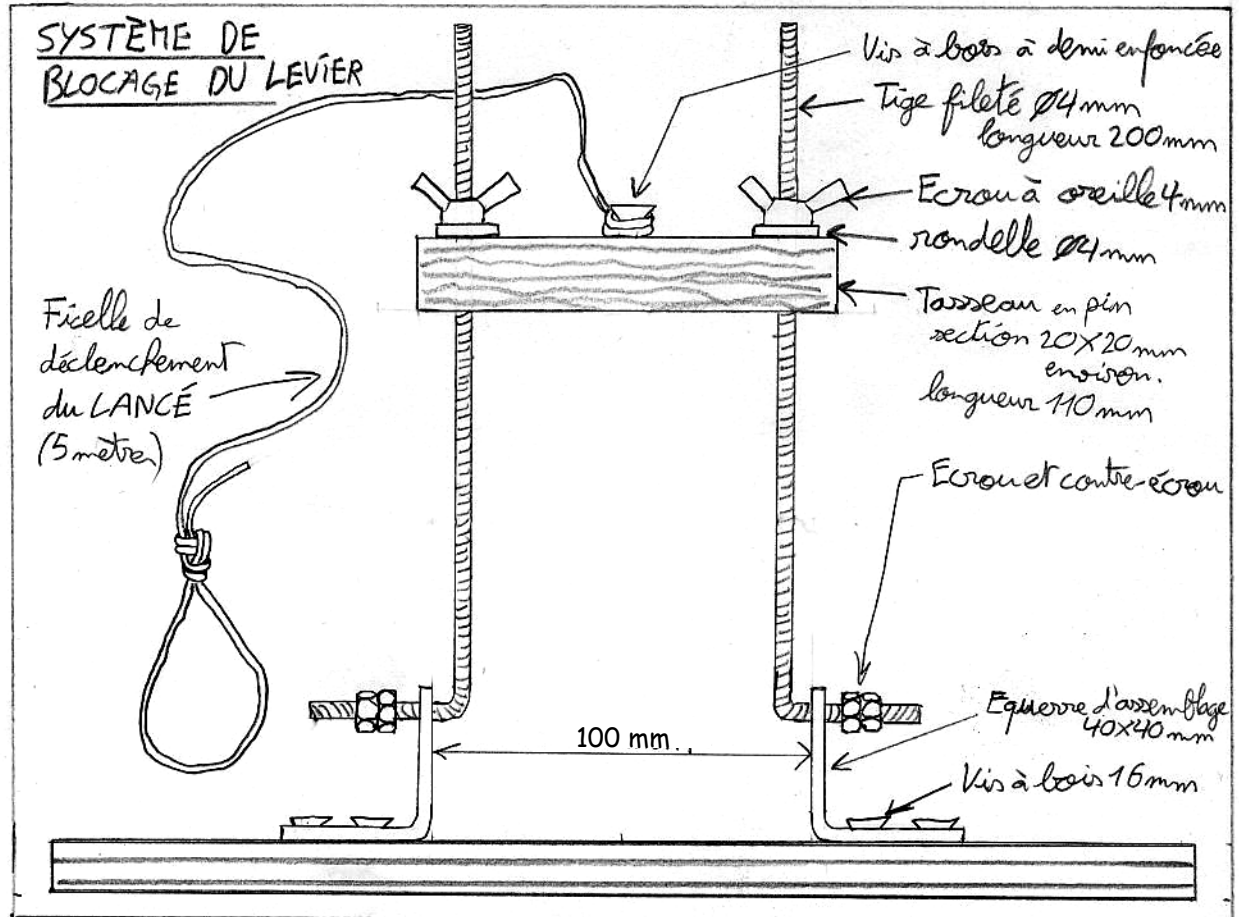 SYSTÈME DE
BLOCAGE DU LEVIER
Vis à bois à demi enfoncée
Tige fileté Ø4mm
longueur 200mm
Ecrou à oreille 4mm
rondelle Ø4mm
Tasseau en pin
section 20X20mm
environ.
longueur 110mm
Ficelle de
déclenchement
du LANCÉ
(5 mètres)
Ecrou et contre-écrou
100 mm.
Equerre d'assemblage
40X40mm
Vis à bois 16mm